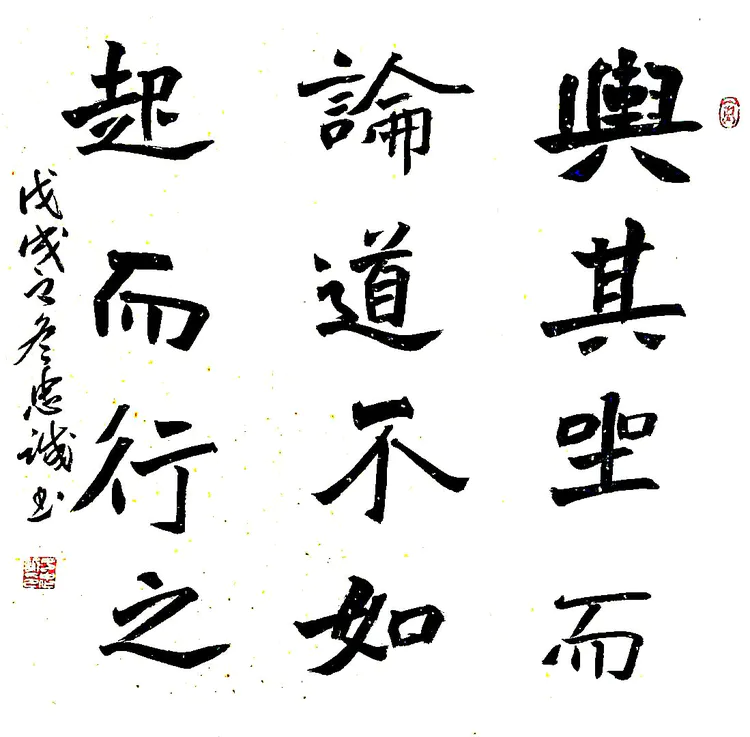 輿其坐而
論道不如
起而行之
戊戌之冬忠誠书